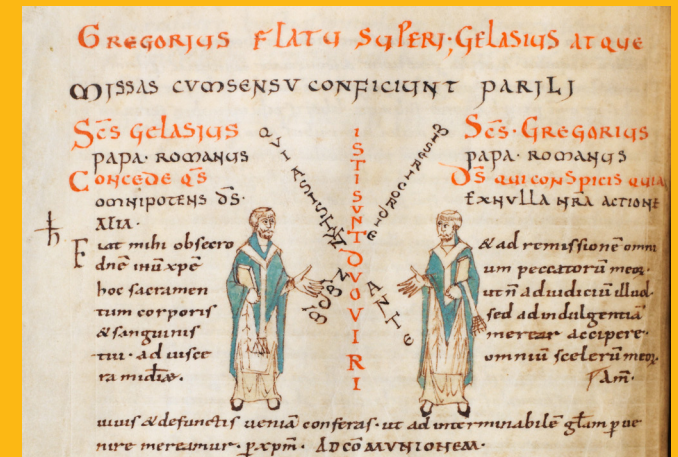 GREGORIUS FLATU SUPERI; GELASIUS ATQUE
MISSAS CUMSENSU CONFICIUNT PARILI
S̄c̄s GELASIUS
PAPA· ROMANUS
CONCEDE Q̄S
OMNIPOTENS D̄S·
ALIA·
Fiat mihi obsecro
dn̄e ihū xp̄e
hoc sacramen
tum corporis
& sanguinis
tui· ad uisce
ISTI SUNT DUO VIRI
S̄c̄s· GREGORIUS
PAPA· ROMANUS
D̄S QUI CONSPICIS QUIA
EX NULLA N̄RA ACTIONE
& ad remissionē omni
um peccatorū meoꝝ·
ut n̄ ad iudiciū illud·
sed ad indulgentiā
merear accipere·
omniū scelerū meoꝝ·
Am̄·
uiuis & defunctis ueniā conferas· ut ad interminabilē gl̄am p ue
nire mereamur· p xp̄m· AD COMMUNIONEM·